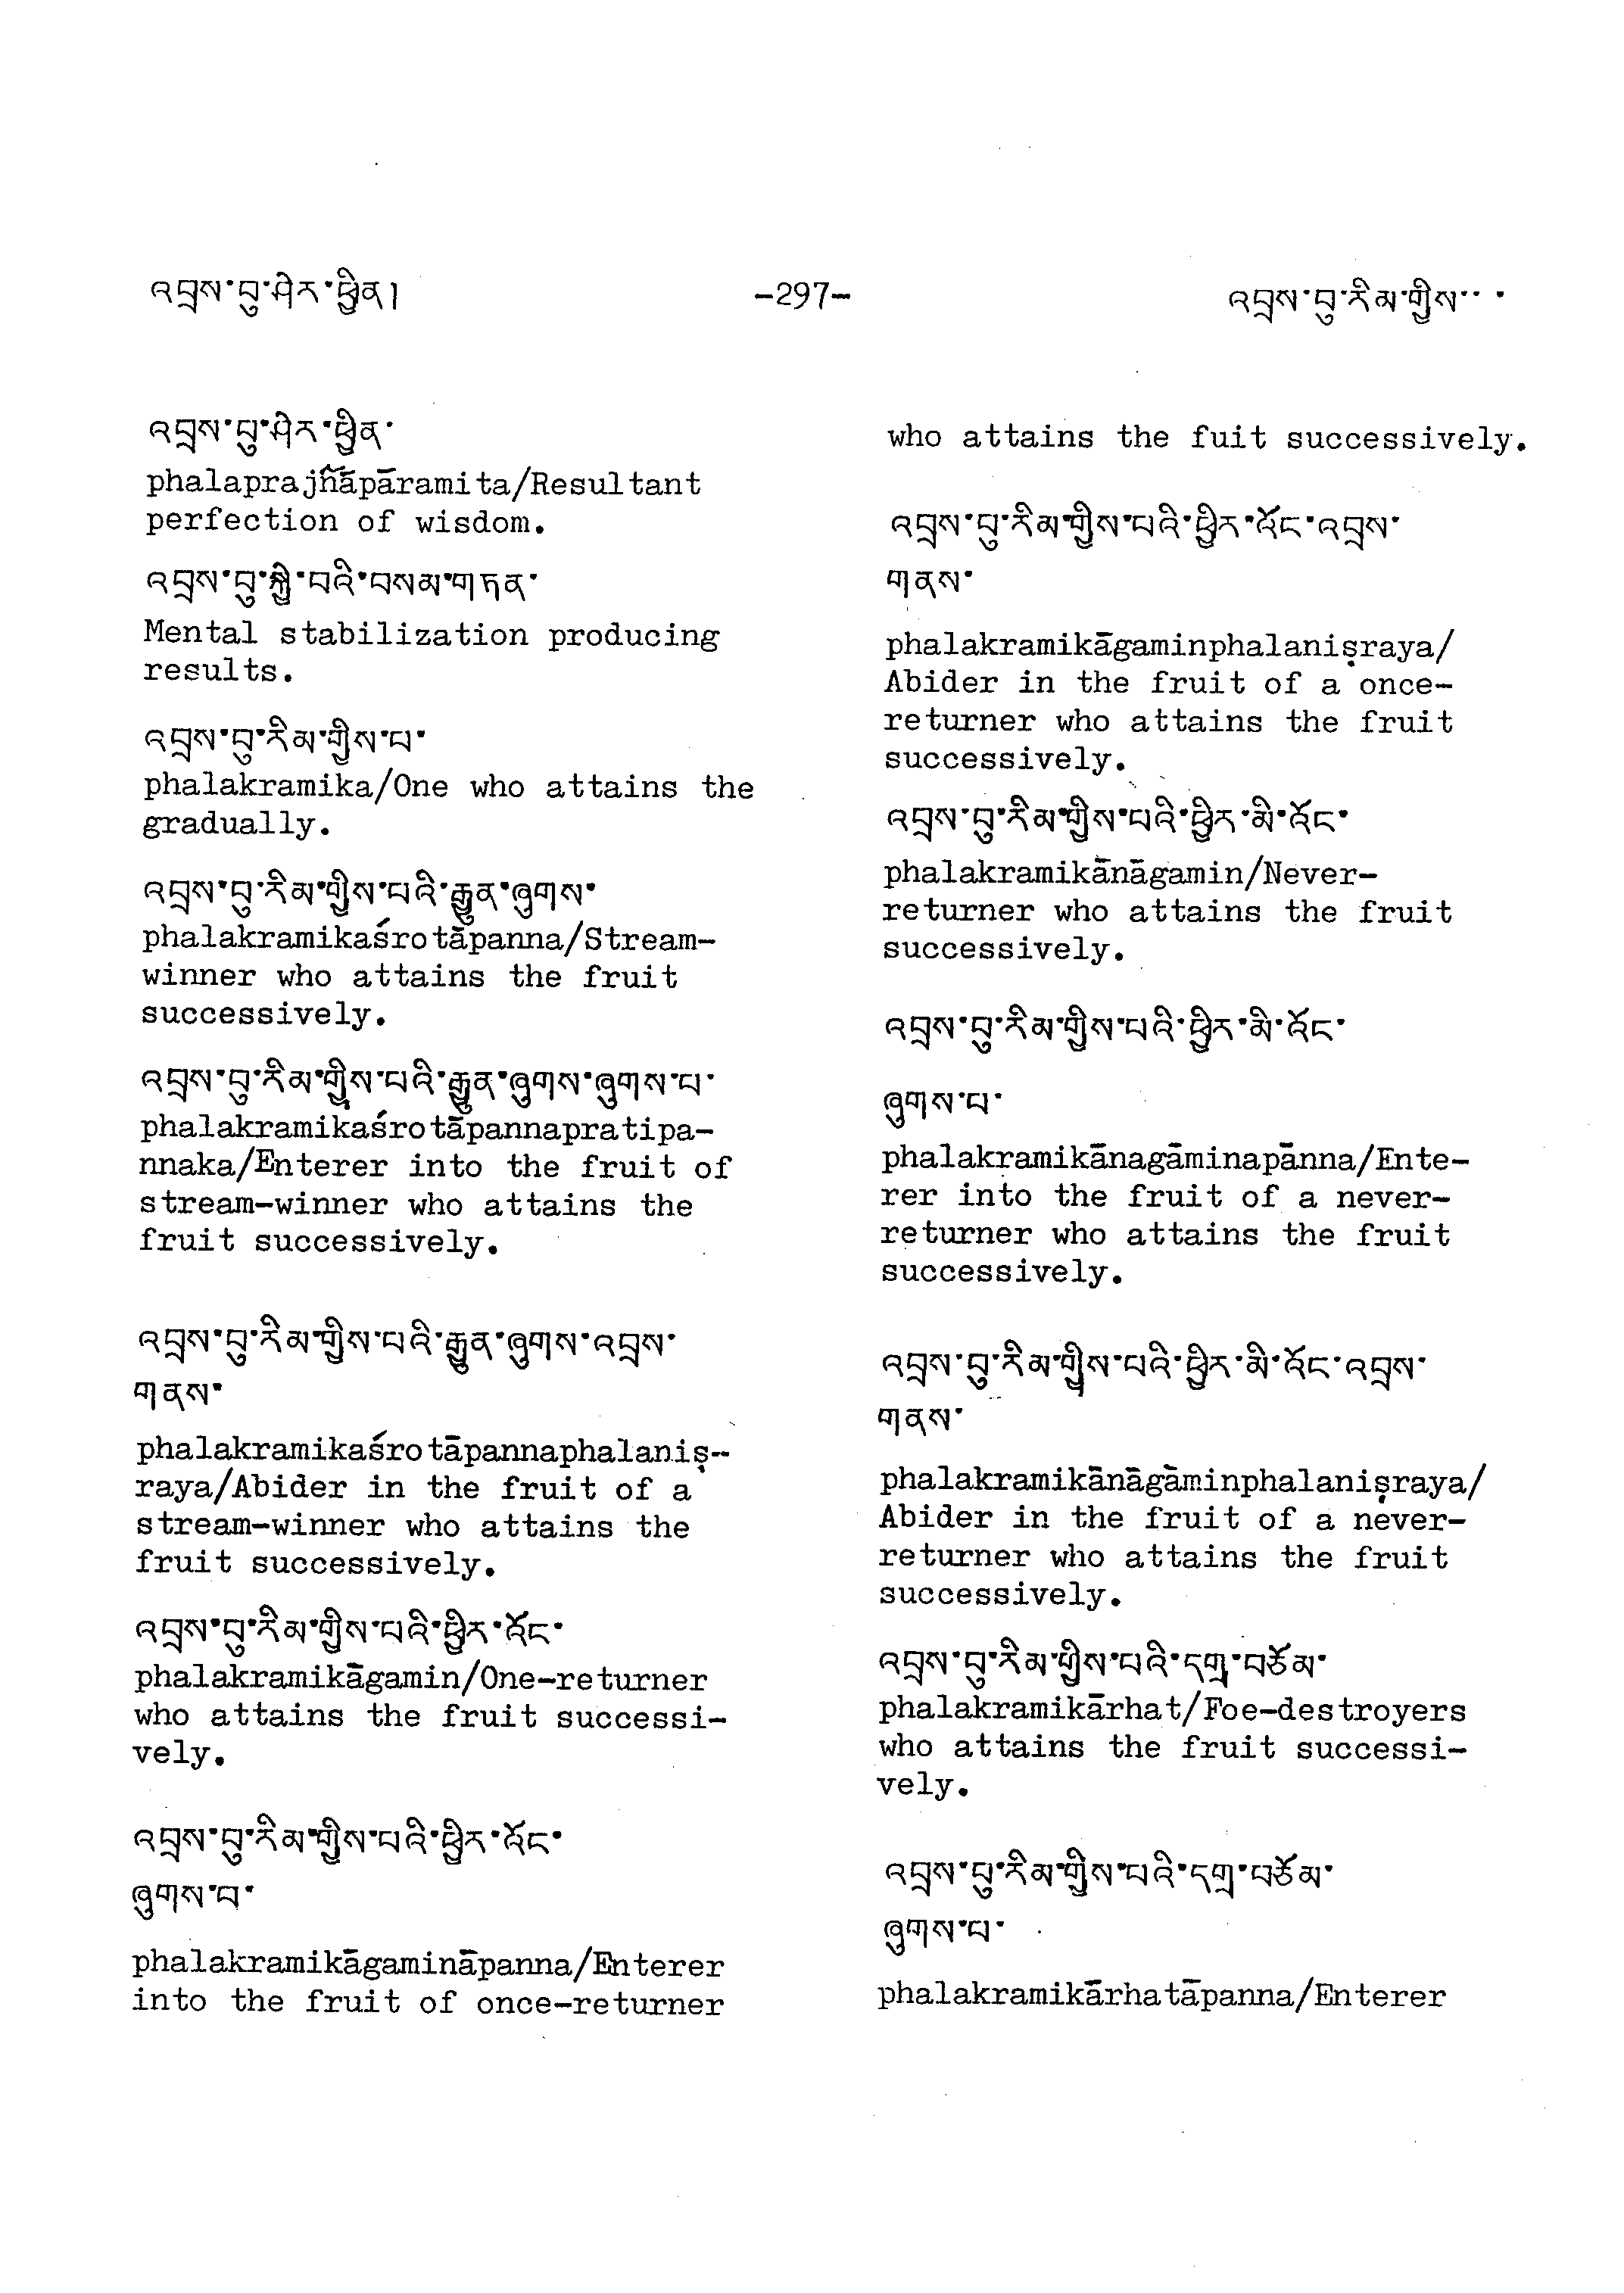 འབྲས་བུ་ཤེར་ཕྱིན།
-297-
འབྲས་བུ་རིམ་གྱིས་་ ་
འབྲས་བུ་ཤེར་ཕྱིན་
phalaprajñāpāramita/Resultant
perfection of wisdom.
འབྲས་བུ་སྐྱེ་བའི་བསམ་གཏན་
Mental stabilization producing
results.
འབྲས་བུ་རིམ་གྱིས་པ་
phalakramika/One who attains the
gradually.
འབྲས་བུ་རིམ་གྱིས་པའི་རྒྱུན་ཞུགས་
phalakramikaśrotāpanna/Stream-
winner who attains the fruit
successively.
འབྲས་བུ་རིམ་གྱིས་པའི་རྒྱུན་ཞུགས་ཞུགས་པ་
phalakramikaśrotāpannapratipa-
nnaka/Enterer into the fruit of
stream-winner who attains the
fruit successively.
འབྲས་བུ་རིམ་གྱིས་པའི་རྒྱུན་ཞུགས་འབྲས་
གནས་
phalakramikaśrotāpannaphalaniṣ-
raya/Abider in the fruit of a
stream-winner who attains the
fruit successively.
འབྲས་བུ་རིམ་གྱིས་པའི་ཕྱིར་འོང་
phalakramikāgamin/One-returner
who attains the fruit successi-
vely.
འབྲས་བུ་རིམ་གྱིས་པའི་ཕྱིར་འོང་
ཞུགས་པ་
phalakramikāgamināpanna/Enterer
into the fruit of once-returner
who attains the fuit successively.
འབྲས་བུ་རིམ་གྱིས་པའི་ཕྱིར་འོང་འབྲས་
གནས་
phalakramikāgaminphalaniṣraya/
Abider in the fruit of a once-
returner who attains the fruit
successively.
འབྲས་བུ་རིམ་གྱིས་པའི་ཕྱིར་མི་འོང་
phalakramikānāgamin/Never-
returner who attains the fruit
successively.
འབྲས་བུ་རིམ་གྱིས་པའི་ཕྱིར་མི་འོང་
ཞུགས་པ་
phalakramikānagāminapānna/Ente-
rer into the fruit of a never-
returner who attains the fruit
successively.
འབྲས་བུ་རིམ་གྱིས་པའི་ཕྱིར་མི་འོང་འབྲས་
གནས་
phalakramikānāgāminphalaniṣraya/
Abider in the fruit of a never-
returner who attains the fruit
successively.
འབྲས་བུ་རིམ་གྱིས་པའི་དགྲ་བཅོམ་
phalakramikārhat/Foe-destroyers
who attains the fruit successi-
vely.
འབྲས་བུ་རིམ་གྱིས་པའི་དགྲ་བཅོམ་
ཞུགས་པ་
phalakramikārhatāpanna/Enterer